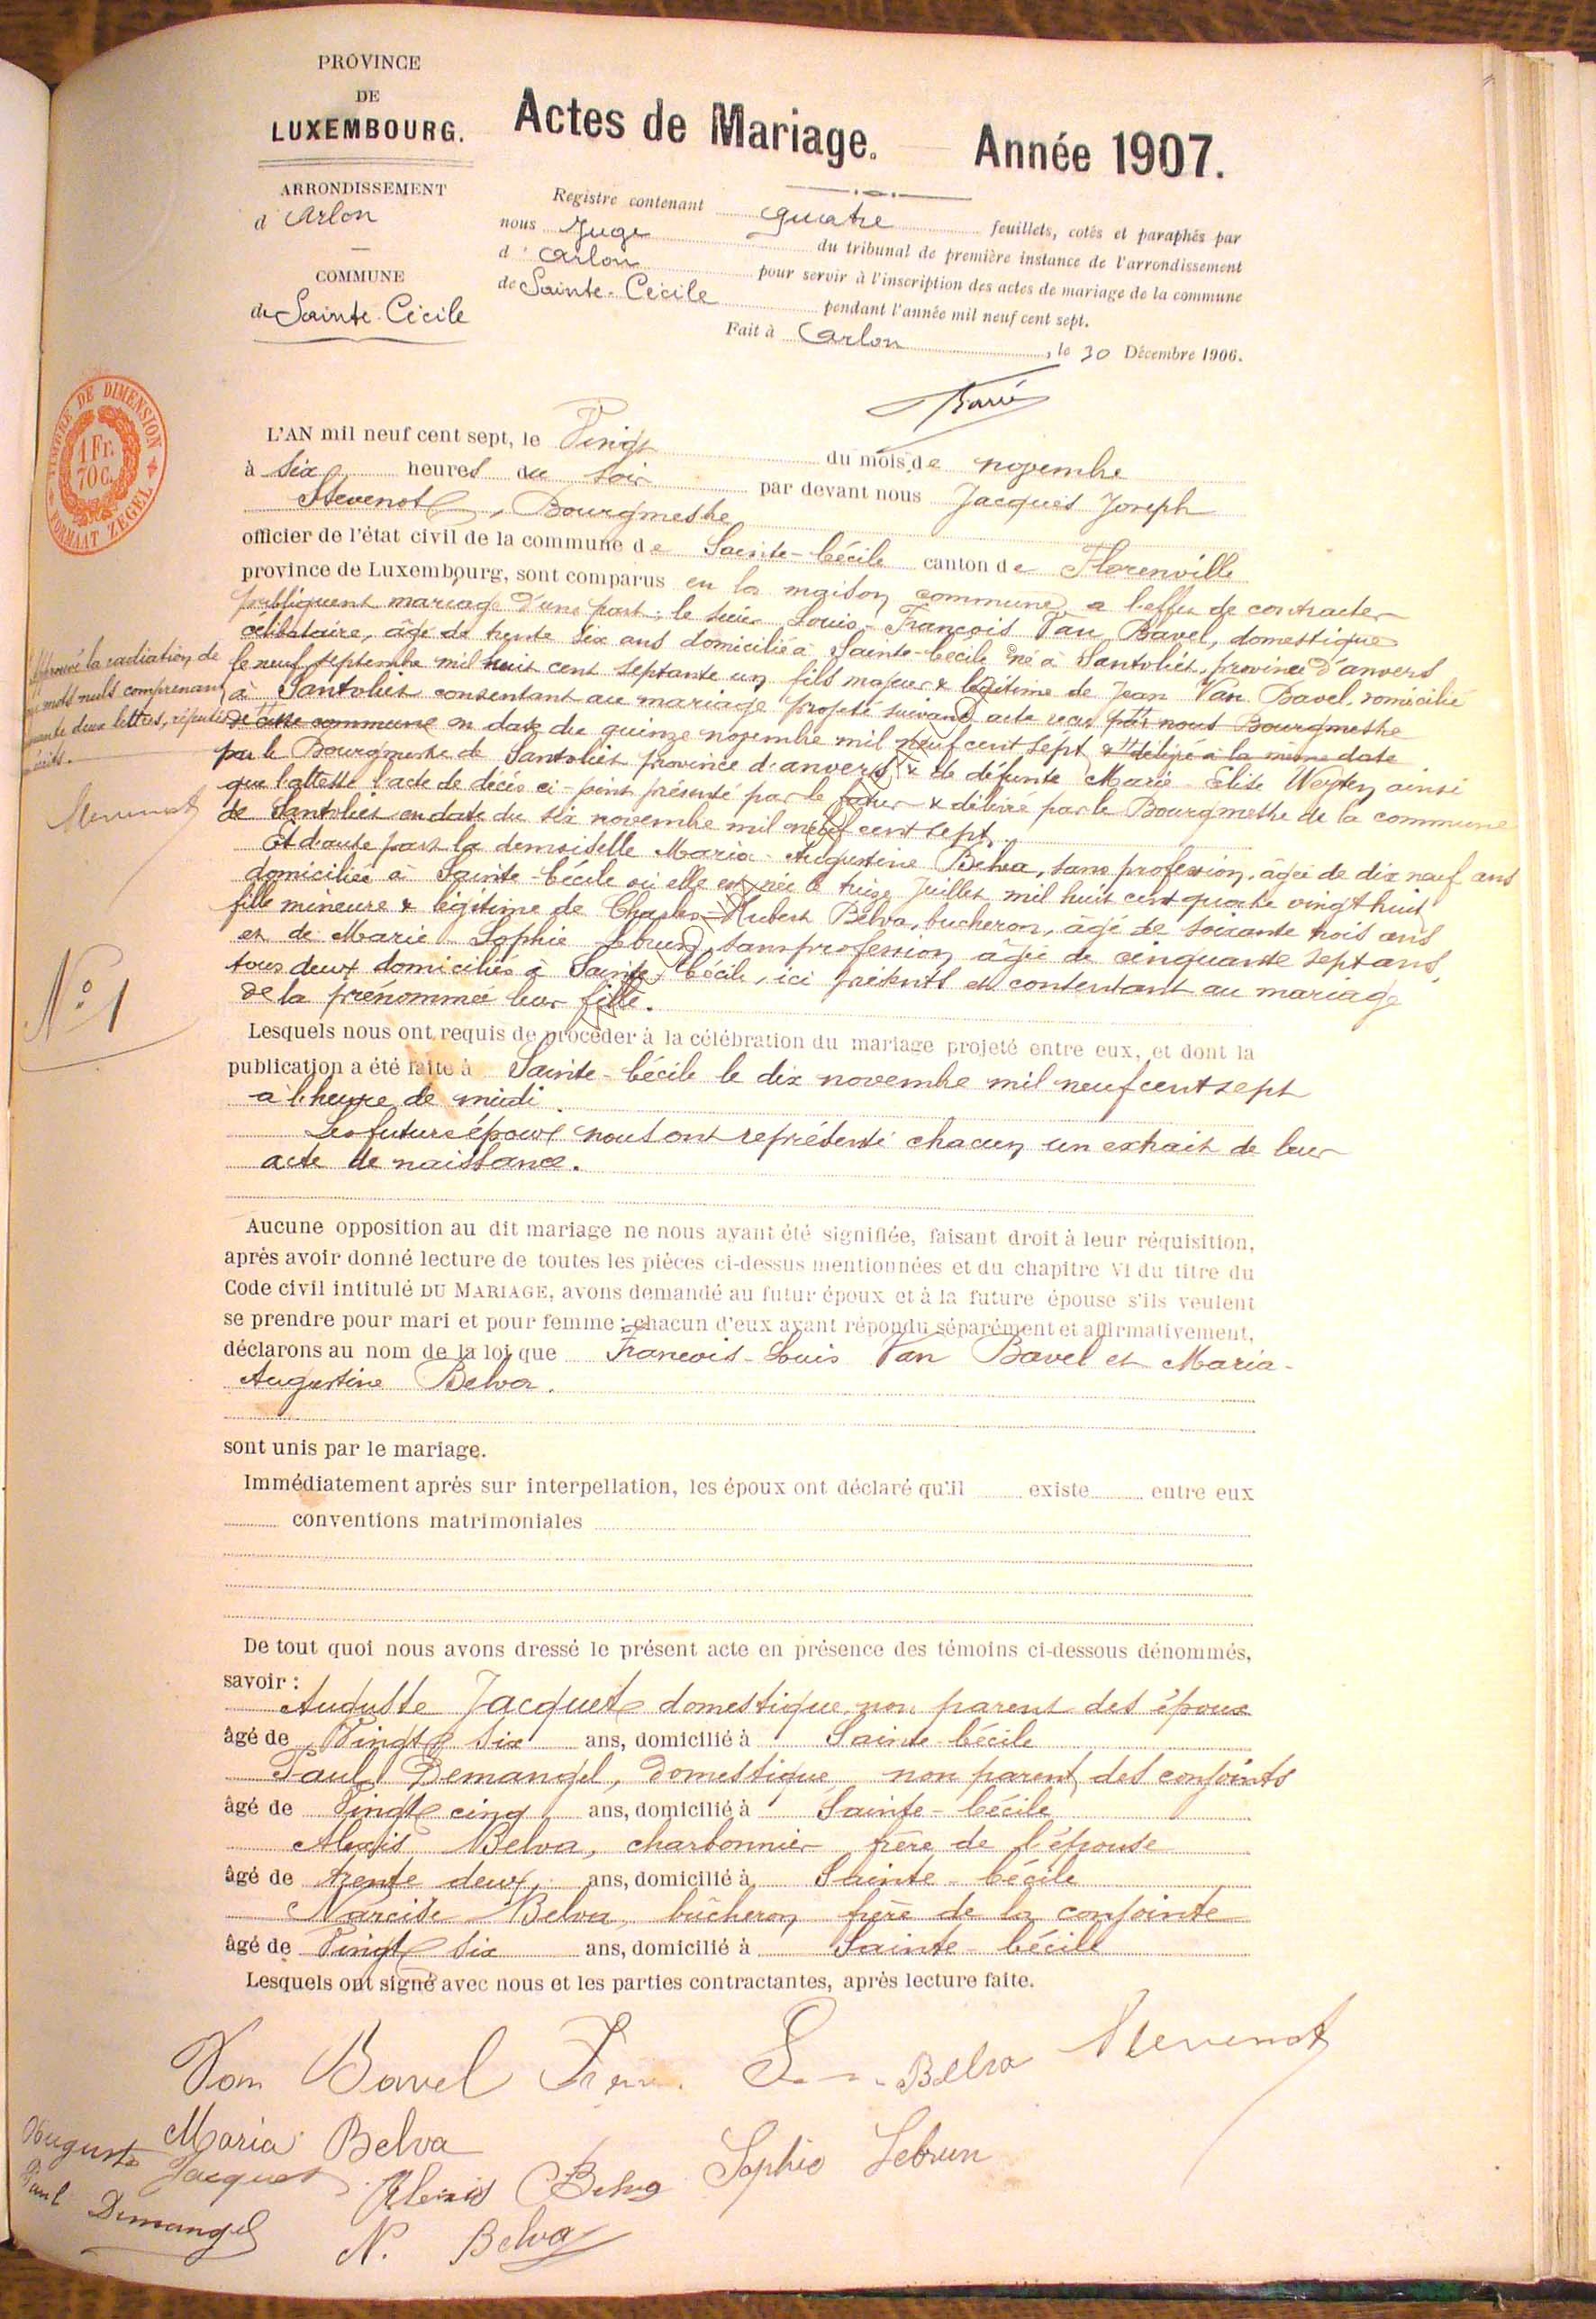 PROVINCE
DE
LUXEMBOURG.
ARRONDISSEMENT
d'Arlon
COMMUNE
de Sainte-Cécile
Actes de Mariage. — Année 1907.
Registre contenant quatre feuillets, cotés et paraphés par
nous Juge du tribunal de première instance de l'arrondissement
d'Arlon pour servir à l'inscription des actes de mariage de la commune
de Sainte-Cécile pendant l'année mil neuf cent sept.
Fait à Arlon, le 30 Décembre 1906.
TIMBRE DE DIMENSION
1 Fr.
70 c.
FORMAAT ZEGEL
L'AN mil neuf cent sept, le Vingt du mois de novembre
à six heures du soir par devant nous Jacques Joseph
Stevenot, Bourgmestre
officier de l'état civil de la commune de Sainte-Cécile canton de Florenville
province de Luxembourg, sont comparus en la maison commune a l'effet de contracter
publiquent mariage d'une part: le sieur Louis-François Van Bavel, domestique
célibataire, âgé de trente six ans domicilié à Sainte-Cécile né à Santvliet, province d'anvers
le neuf septembre mil huit cent septante un fils majeur & legitime de Jean Van Bavel, domicilié
à Santvliet consentant au mariage projeté suivant acte recu par nous Bourgmestre
de cette commune en date du quinze novembre mil neuf cent sept & délivré à la même date
par le Bourgmestre de Santvliet province d'anvers, & de défunte Marie Elise Weyten ainsi
que l'atteste l'acte de décès ci-joint présenté par le futur & délivré par le Bourgmestre de la commune
de Santvliet en date du six novembre mil neuf cent sept.
Et d'autre part la demoiselle Maria-Augustine Belva, sans profession, âgée de dix neuf ans
domiciliée à Sainte-Cécile où elle est née le treize Juillet mil huit cent quatre vingt huit
fille mineure & légitime de Charles-Hubert Belva, bucheron, âgé de soixante trois ans
et de Marie-Sophie Lebrun, sans profession âgée de cinquante sept ans,
tous deux domiciliés à Sainte-Cécile, ici présents et consentant au mariage
de la prénommée leur fille.
Approuvé la radiation de
mots nuls comprenant
deux lettres,
Stevenot
N° 1
Lesquels nous ont requis de procéder à la célébration du mariage projeté entre eux, et dont la
publication a été faite à Sainte-Cécile le dix novembre mil neuf cent sept
à l'heure de midi.
Les futurs époux nous ont représenté chacun un extrait de leur
acte de naissance.
Aucune opposition au dit mariage ne nous ayant été signifiée, faisant droit à leur réquisition,
après avoir donné lecture de toutes les pièces ci-dessus mentionnées et du chapitre VI du titre du
Code civil intitulé DU MARIAGE, avons demandé au futur époux et à la future épouse s'ils veulent
se prendre pour mari et pour femme; chacun d'eux ayant répondu séparément et affirmativement,
déclarons au nom de la loi que François-Louis Van Bavel et Maria-
Augustine Belva.
sont unis par le mariage.
Immédiatement après sur interpellation, les époux ont déclaré qu'il existe entre eux
conventions matrimoniales
De tout quoi nous avons dressé le présent acte en présence des témoins ci-dessous dénommés,
savoir :
Auguste Jacquet domestique, non parent des époux
âgé de Vingt six ans, domicilié à Sainte-Cécile
Paul Demangel, domestique, non parent des conjoints
âgé de Vingt cinq ans, domicilié à Sainte-Cécile
Alexis Belva, charbonnier frère de l'épouse
âgé de trente deux ans, domicilié à Sainte-Cécile
Narcisse Belva, bûcheron, frère de la conjointe
âgé de Vingt six ans, domicilié à Sainte-Cécile
Lesquels ont signé avec nous et les parties contractantes, après lecture faite.
Van Bavel Belva Stevenot
Maria Belva
Auguste Jacquet
Alexis Belva Sophie Lebrun
Paul Demangel
N. Belva